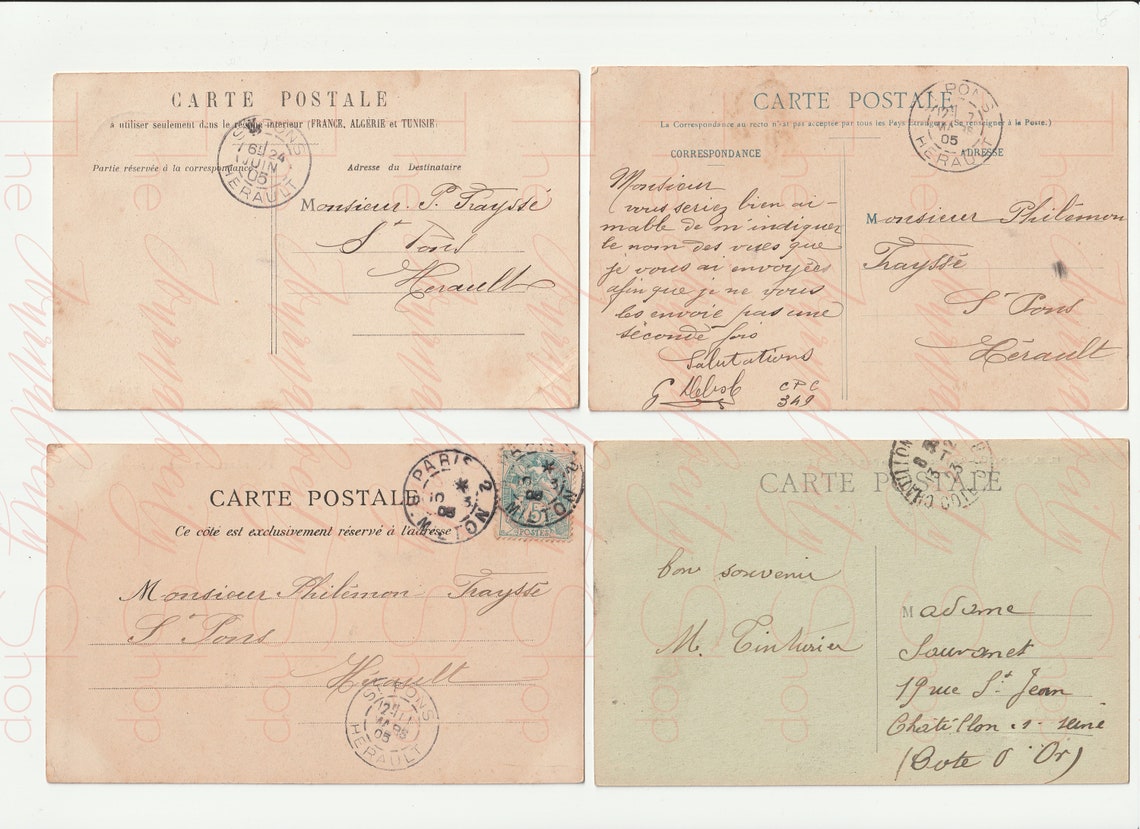 CARTE POSTALE
à utiliser seulement dans le régime intérieur (FRANCE, ALGÉRIE et TUNISIE)
Partie réservée à la correspondance
Adresse du Destinataire
Monsieur P. Frayssé
St Pons
Hérault
ST PONS
6E 24
JUIN
05
HERAULT
CARTE POSTALE
La Correspondance au recto n'est pas acceptée par tous les Pays Étrangers (Se renseigner à la Poste.)
CORRESPONDANCE
ADRESSE
Monsieur
vous seriez bien ai-
mable de m'indiquer
le nom des vues que
je vous ai envoyées
afin que je ne vous
les envoie pas une
seconde fois
Salutations
G
CPC
349
Monsieur Philémon
Frayssé
St Pons
Hérault
PONS
MARS
05
HERAULT
CARTE POSTALE
Ce côté est exclusivement réservé à l'adresse
Monsieur Philémon Frayssé
St Pons
Hérault
PARIS
POSTES
ST PONS
MARS
05
HERAULT
CARTE POSTALE
bon souvenir
M. Tinturier
Madame
Sauvanet
19 rue St Jean
Châtillon s- seine
(Cote d'Or)
CHATILLON
The
Shop